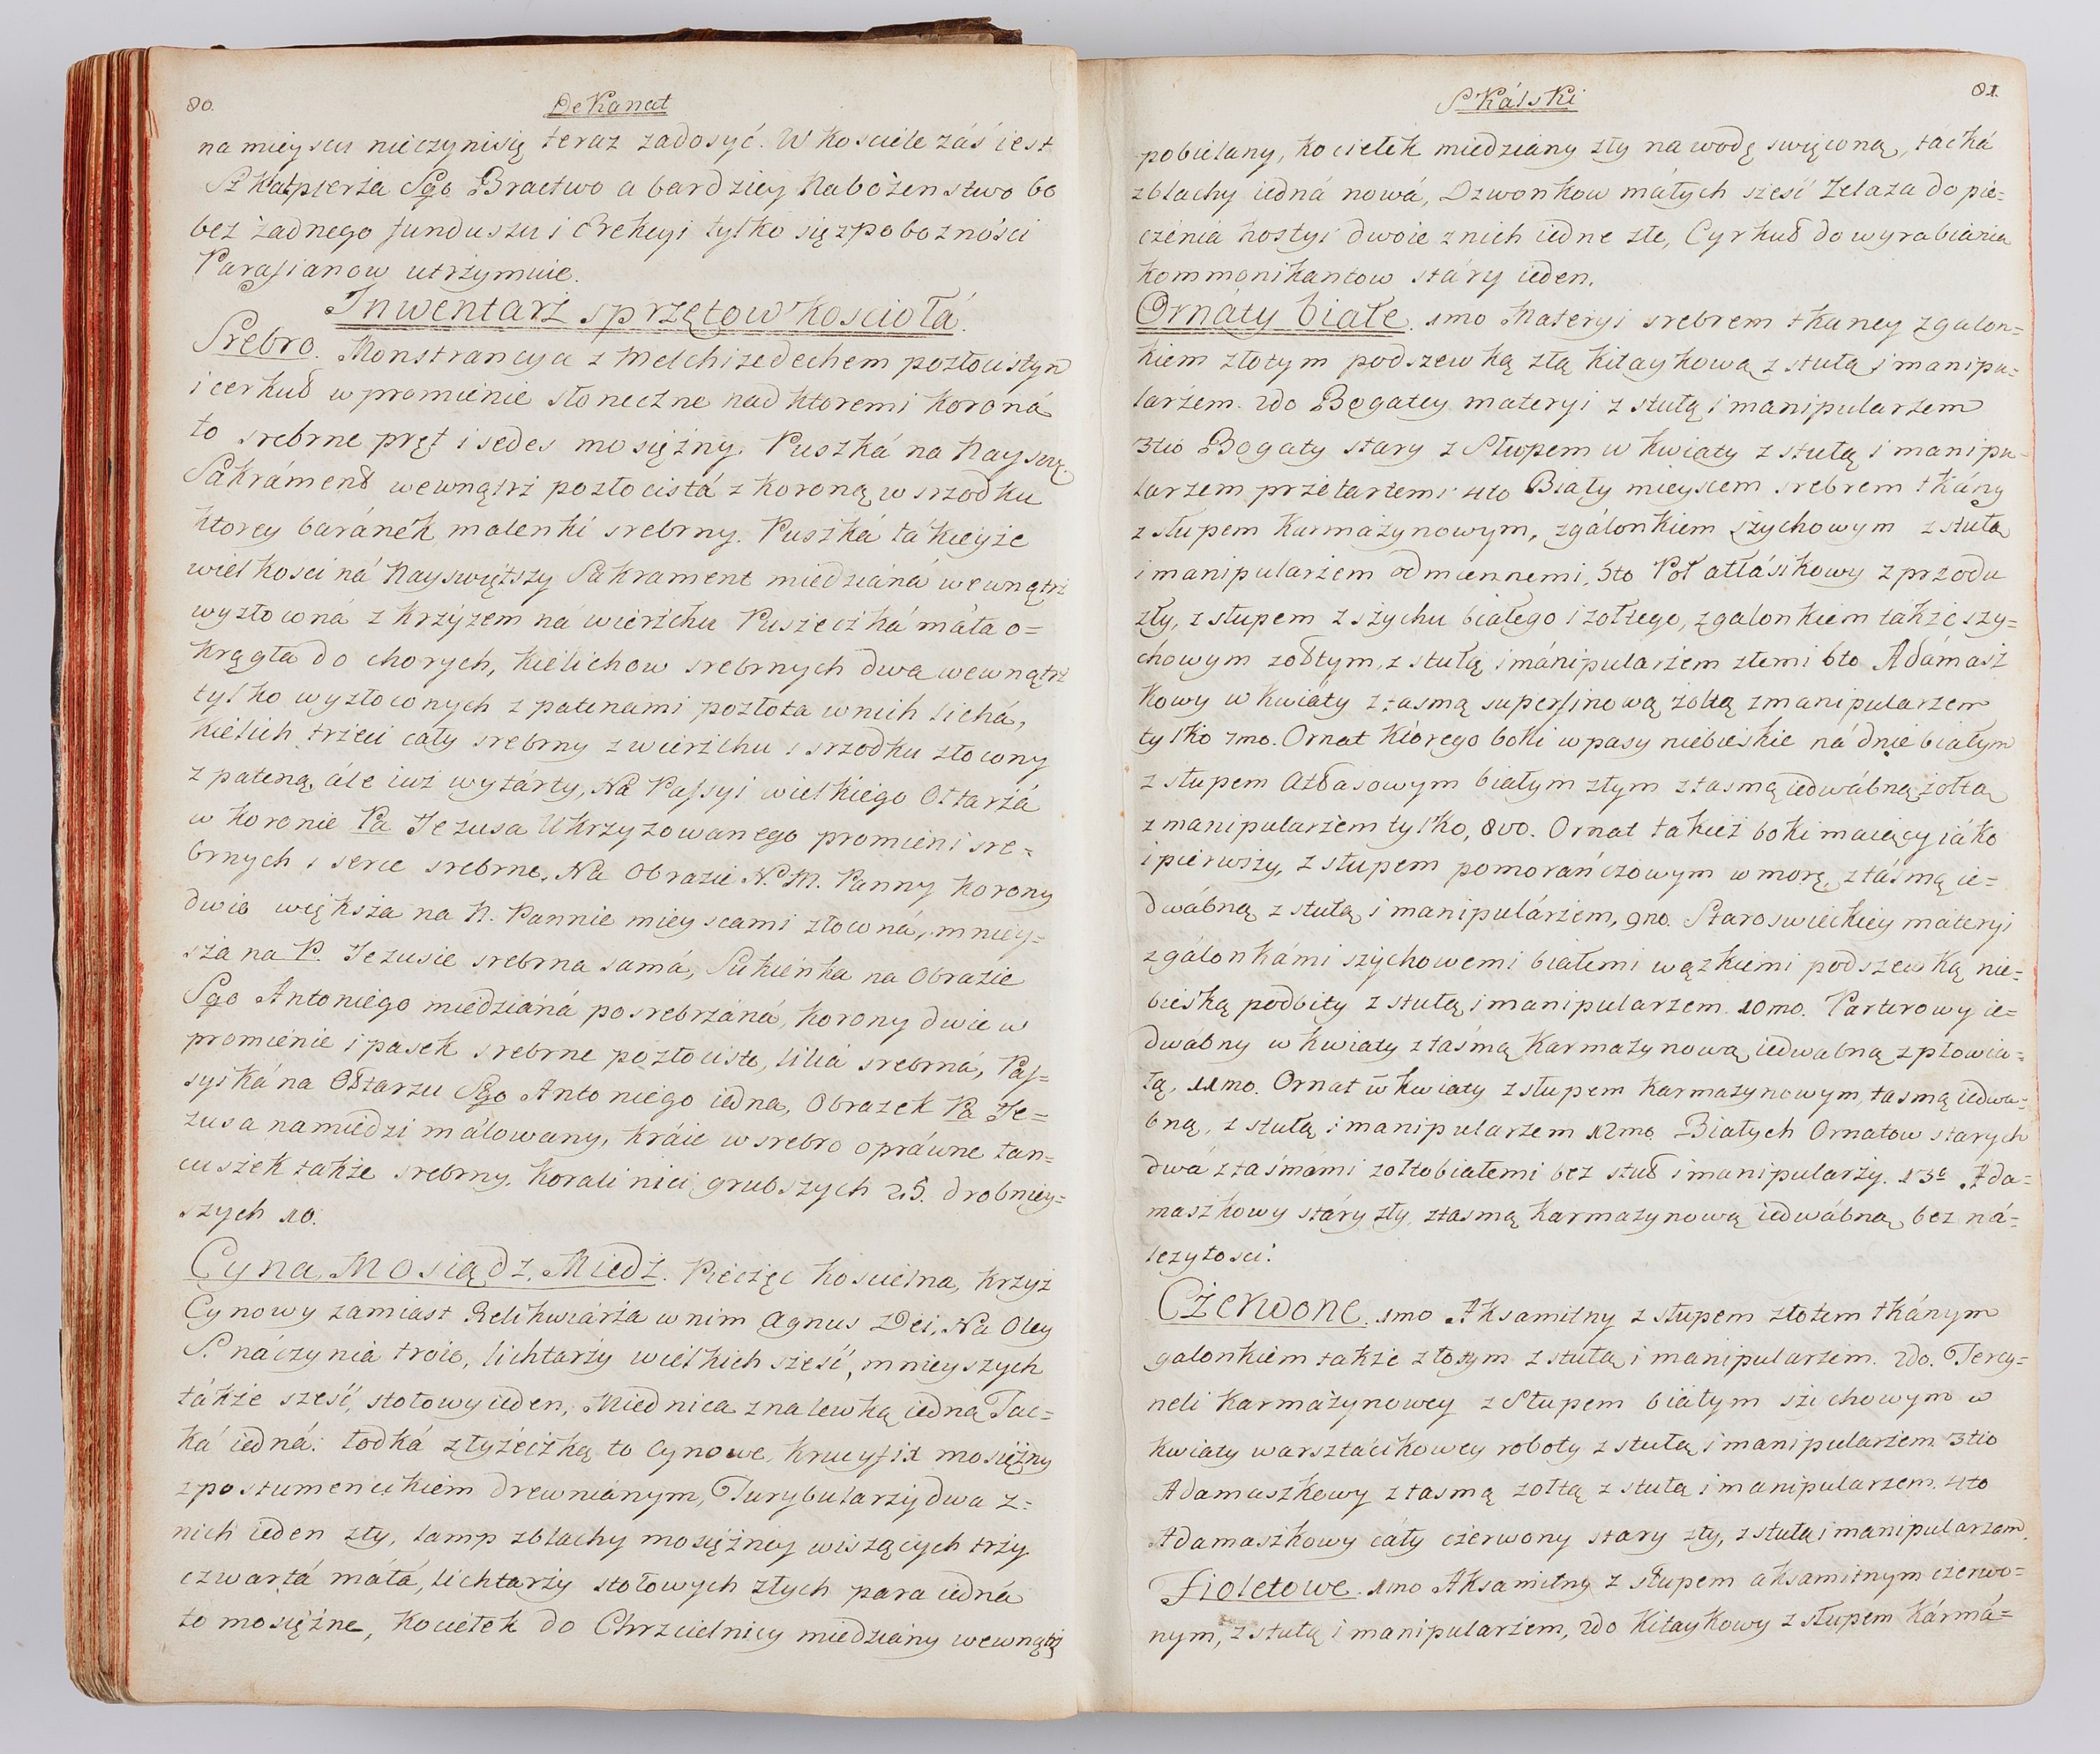 80.
DeKanat
na mieyscu nieczynisię teraz zadosyć. W kosciele zás iest
Szkaplerza Sgo Bractwo a bardziey Nabożenstwo bo
bez żadnego funduszu i Erekcyi tylko się z pobożnośći
Parafianow utrzymuie.
Inwentarz sprzętow kosciołá.
Srebro. Monstrancya z Melchizedechem pozłocistym
i cerkuł w promienie słoneczne nad ktoremi koroná
to srebrne pręt i sedes mosiężny. Puszká na Nayswę.
Sakráment wewnątrz pozłocistá z koroną w srzodku
ktorey baránek malenki srebrny. Puszká tákieyże
wielkosci ná Nayswiętszy Sakrament miedzianá wewnątrz
wyzłoconá z krzyżem ná wierzchu Puszeczká máła o=
krągła do chorych, kielichow srebrnych dwa wewnątrz
tylko wyzłoconych z patenami pozłota w nich lichá,
Kielich trzeci cały srebrny z wierzchu i srzodku złocony
z pateną, ále iuż wytárty, Na Passyi wielkiego Ołtarzá
w koronie Pa Jezusa Ukrzyżowanego promieni sre=
brnych i serce srebrne, Na Obrazie N. M. Panny korony
dwie większa na N. Pannie mieyscami złoconá, mniey=
sza na P. Jezusie srebrna samá, Sukienka na Obrazie
Sgo Antoniego miedzianá posrebrzáná, korony dwie w
promienie i pasek srebrne pozłociste, liliá srebrná, Pas=
syiká na Ołtarzu Sgo Antoniego iedna, Obrazek Pa Je=
zusa na miedzi málowany, kráie w srebro opráwne łan=
cuszek także srebrny. korali nici grubszych 25. drobniey=
szych 10.
Cyna, Mosiądz, Miedź. Pieczęc koscielna, krzyż
Cynowy zamiast Relikwiárza w nim Agnus Dei, Na Oley
S. náczynia troie, lichtarzy wielkich sześć, mnieyszych
tákże sześć, stołowy ieden, Miednica z nalewką iedna Tac=
ká iedná: łodká z łyżeczką to Cynowe, Krucyfix mosiężny
z postumencikiem drewniánym, Turybularzy dwa z=
nich ieden zły, lamp z blachy mosiężney wiszących trzy
czwartá máłá, lichtarzy stołowych złych para iedná
to mosiężne, Kociełek do Chrzcielnicy miedziany wewnątrz
81.
SKálski
pobielany, kociełek miedziany zły na wodę swięconą, tacká
z blachy iedná nowá, Dzwonkow máłych sześć Zelaza do pie=
czenia hostyi dwoie z nich iedne złe, Cyrkuł do wyrabiania
kommonikantow stáry ieden.
Ornaty białe. 1mo Materyi srebrem tkaney z galon=
kiem złotym podszewką złą kitaykową z stułą i manipu=
larzem. 2do Bogatey materyi z stułą i manipularzem
3tio Bogaty stary z Słupem w kwiaty z stułą i manipu=
larzem przetartemi 4to Biały mieyscem srebrem tkány
z słupem karmazynowym, z gálonkiem szychowym z stułą
i manipularzem odmiennemi, 5to Poł atłásikowy z przodu
zły, z słupem z szychu białego i żołtego, z galonkiem także szy=
chowym żołtym, z stułą i mánipularzem złemi 6to Adámasz
kowy w kwiáty z tasmą superfinową żołtą z manipularzem
tylko 7mo. Ornat którego boki w pasy niebieskie ná dnie białym
z słupem atłasowym białym złym z tasmą iedwábną żołtą
z manipularzem tylko, 8vo. Ornat takież boki maiący iáko
i pierwszy, z słupem pomorańczowym w morę, z táśmą ie=
dwábną z stułą i manipulárzem, 9no. Staroswieckiey materyi
z gálonkámi szychowemi białemi wązkiemi podszewką nie=
bieską podbity z stułą i manipularzem. 10mo. Parterowy ie=
dwábny w kwiaty z táśmą karmazynową iedwabną z płowia=
łą, 11mo. Ornat w kwiaty z słupem karmazynowym, tasmą iedwa=
bną, z stułą i manipularzem 12mo Białych Ornatow starych
dwá z taśmámi żołtobiałemi bez stuł i manipularzy. 13o Ada=
maszkowy stáry zły, z tasmą karmazynową iedwábną bez ná=
leżytosci.
Czerwone. 1mo Aksamitny z słupem złotem tkánym
galonkiem także złotym z stułą i manipularzem. 2do. Tercy=
neli karmazynowey z Słupem białym szichowym w
kwiaty warsztácikowey roboty z stułą i manipularzem 3tio
Adamaszkowy z tasmą żołtą z stułą i manipularzem. 4to
Adamaszkowy cáły czerwony stary zły, z stułą i manipularzem.
Fioletowe. 1mo Aksamitny z słupem aksamitnym czerwo=
nym, z stułą i manipularzem, 2do Kitaykowy z słupem kármá=